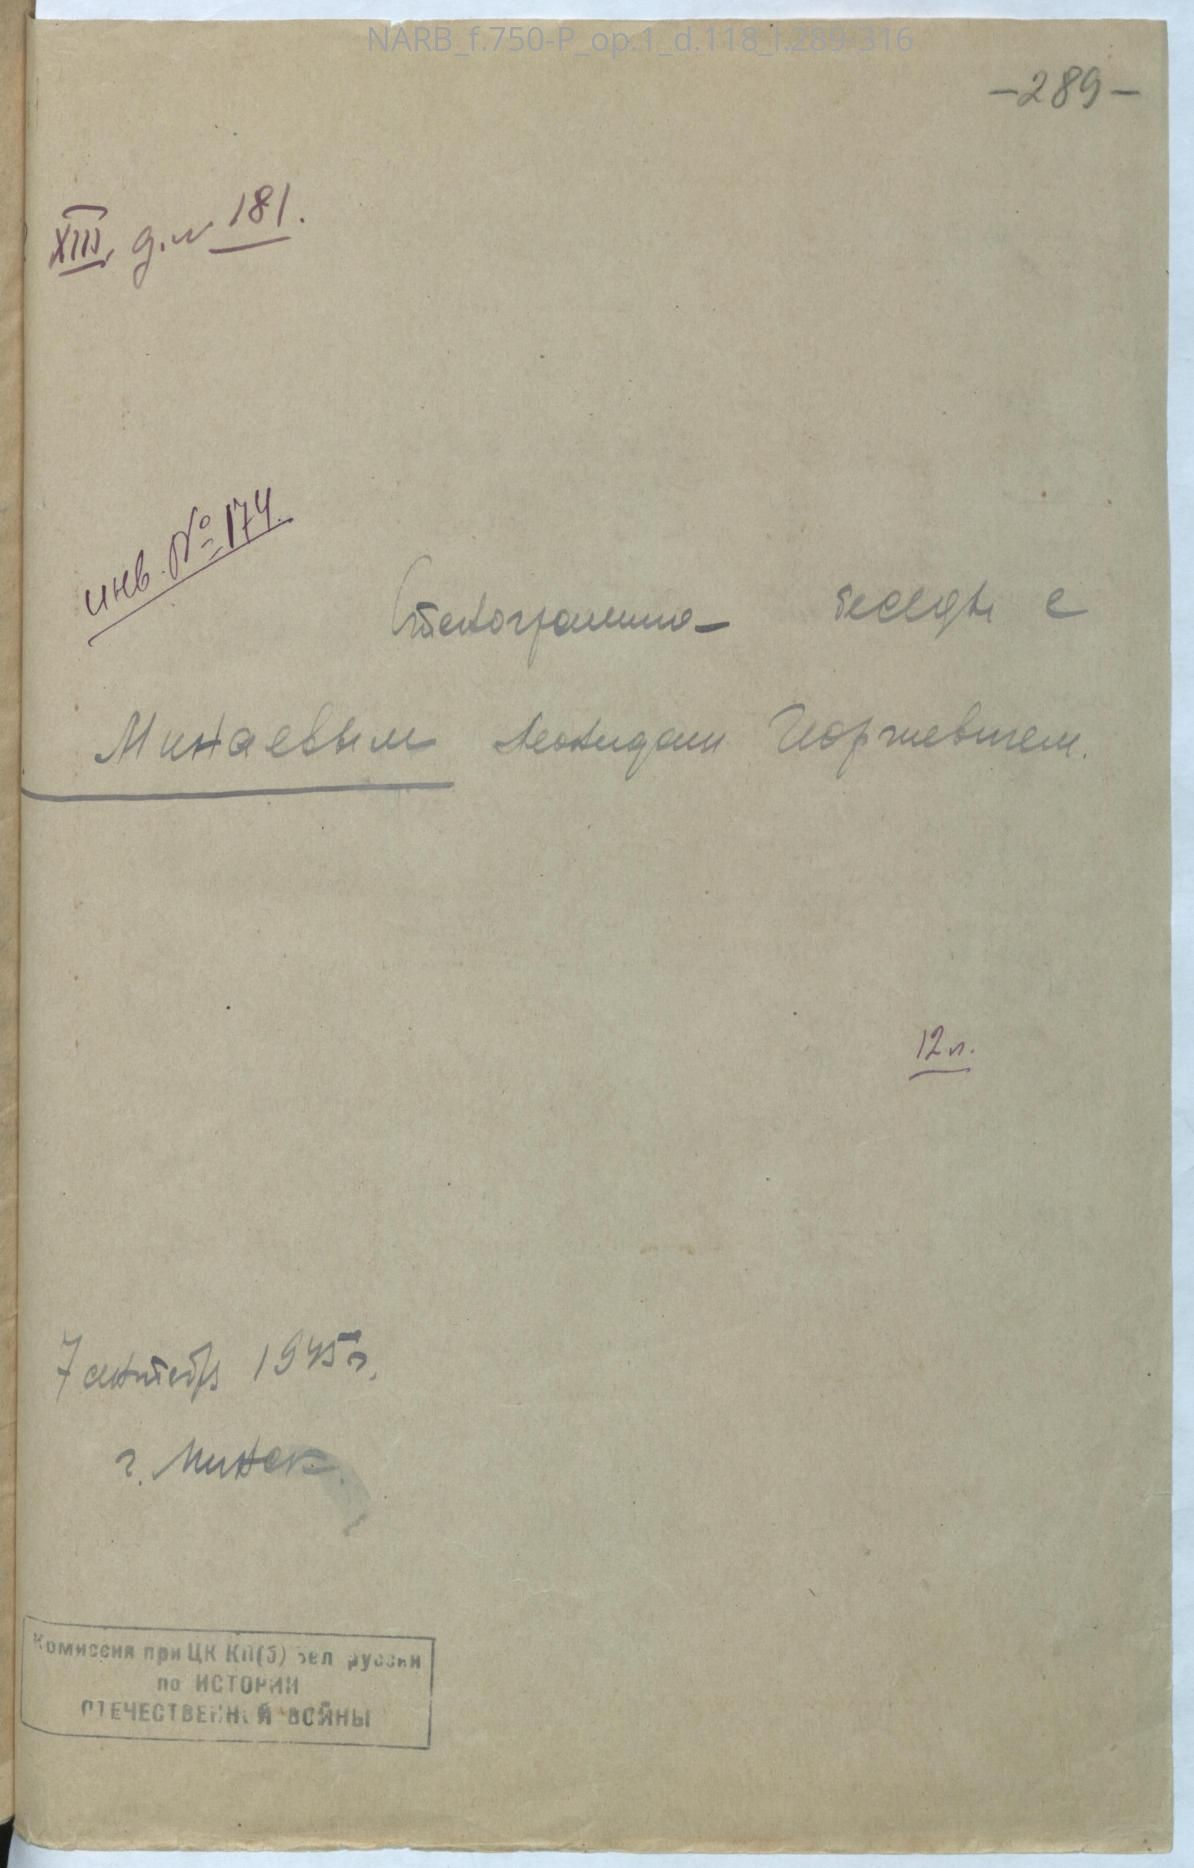 NARB_f.750-P_op.1_d.118_l.289-316
-289-
XIII, д. № 181.
инв. № 174.
Стенограмма беседы с
Минаевым Леонидом Георгиевичем.
12 л.
7 сентября 1945 г.
г. Минск.
Комиссия при ЦК КП(б) Белоруссии
по ИСТОРИИ
ОТЕЧЕСТВЕННОЙ ВОЙНЫ